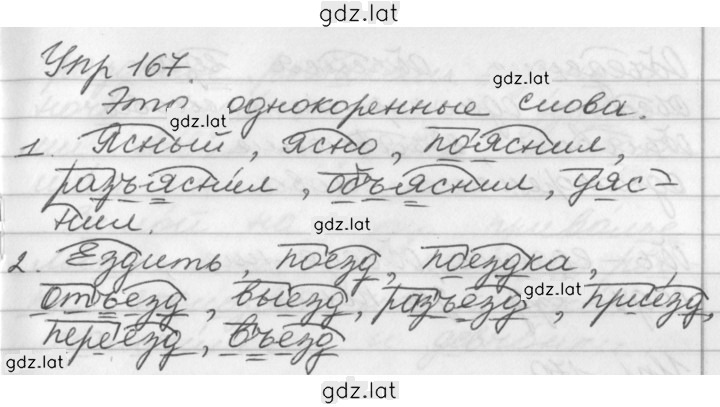 gdz.lat
Упр 167.
gdz.lat
Это однокоренные слова.
gdz.lat
1. Ясный, ясно, пояснил,
разъяснил, объяснил, уяс-
нил.
gdz.lat
2. Ездить, поезд, поездка,
gdz.lat
отъезд, выезд, разъезд, приезд,
переезд, въезд
gdz.lat
gdz.lat